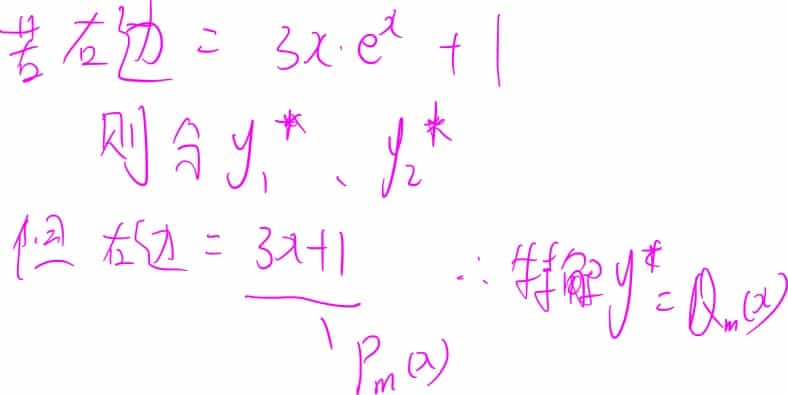 若右边 = 3x·e^x + 1
则令 y₁*、y₂*
但右边 = 3x+1 ∴特解 y* = Qₘ(x)
Pₘ(x)